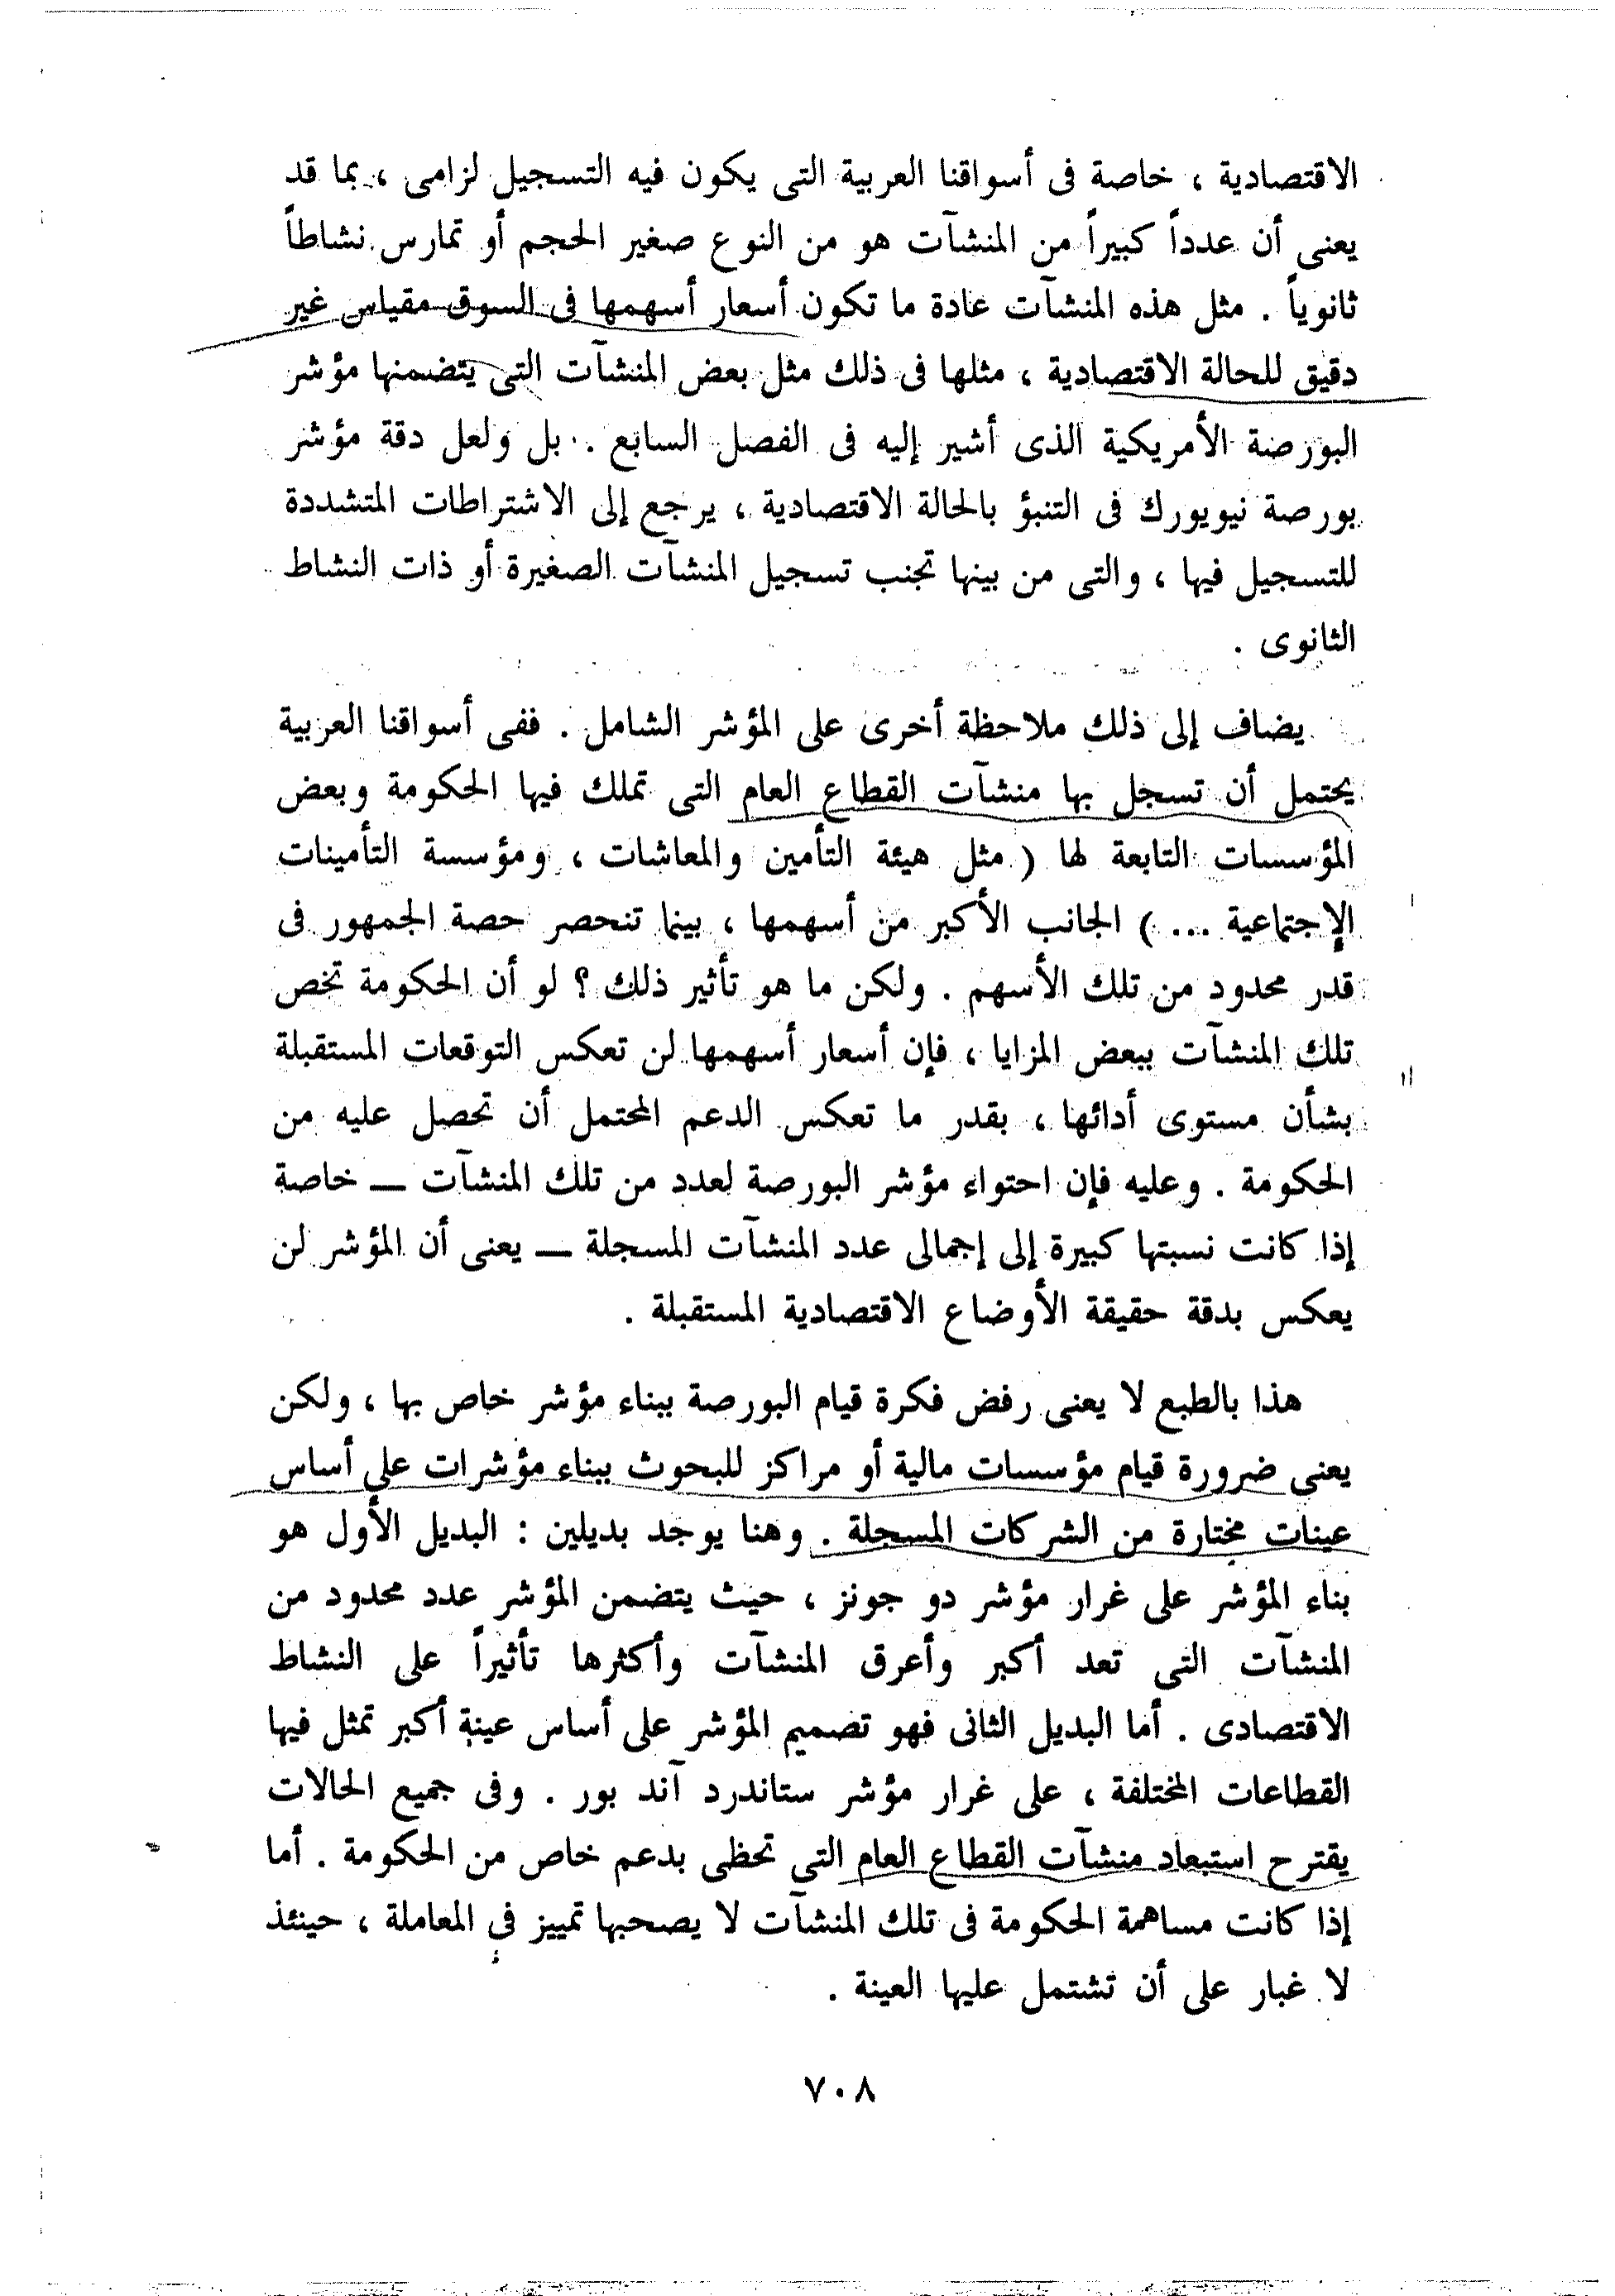 الاقتصادية ، خاصة فى أسواقنا العربية التى يكون فيه التسجيل لزامى ، بما قد
يعنى أن عدداً كبيراً من المنشآت هو من النوع صغير الحجم أو تمارس نشاطاً
ثانوياً . مثل هذه المنشآت عادة ما تكون أسعار أسهمها فى السوق مقياس غير
دقيق للحالة الاقتصادية ، مثلها فى ذلك مثل بعض المنشآت التى يتضمنها مؤشر
البورصة الأمريكية الذى أشير إليه فى الفصل السابع . بل ولعل دقة مؤشر
بورصة نيويورك فى التنبؤ بالحالة الاقتصادية ، يرجع إلى الاشتراطات المتشددة
للتسجيل فيها ، والتى من بينها تجنب تسجيل المنشآت الصغيرة أو ذات النشاط
الثانوى .
يضاف إلى ذلك ملاحظة أخرى على المؤشر الشامل . ففى أسواقنا العربية
يحتمل أن تسجل بها منشآت القطاع العام التى تملك فيها الحكومة وبعض
المؤسسات التابعة لها ( مثل هيئة التأمين والمعاشات ، ومؤسسة التأمينات
الإجتماعية ... ) الجانب الأكبر من أسهمها ، بينما تنحصر حصة الجمهور فى
قدر محدود من تلك الأسهم . ولكن ما هو تأثير ذلك ؟ لو أن الحكومة تخص
تلك المنشآت ببعض المزايا ، فإن أسعار أسهمها لن تعكس التوقعات المستقبلة
بشأن مستوى أدائها ، بقدر ما تعكس الدعم المحتمل أن تحصل عليه من
الحكومة . وعليه فإن احتواء مؤشر البورصة لعدد من تلك المنشآت ــ خاصة
إذا كانت نسبتها كبيرة إلى إجمالى عدد المنشآت المسجلة ــ يعنى أن المؤشر لن
يعكس بدقة حقيقة الأوضاع الاقتصادية المستقبلة .
هذا بالطبع لا يعنى رفض فكرة قيام البورصة ببناء مؤشر خاص بها ، ولكن
يعنى ضرورة قيام مؤسسات مالية أو مراكز للبحوث ببناء مؤشرات على أساس
عينات مختارة من الشركات المسجلة . وهنا يوجد بديلين : البديل الأول هو
بناء المؤشر على غرار مؤشر دو جونز ، حيث يتضمن المؤشر عدد محدود من
المنشآت التى تعد أكبر وأعرق المنشآت وأكثرها تأثيراً على النشاط
الاقتصادى . أما البديل الثانى فهو تصميم المؤشر على أساس عينة أكبر تمثل فيها
القطاعات المختلفة ، على غرار مؤشر ستاندرد آند بور . وفى جميع الحالات
يقترح استبعاد منشآت القطاع العام التى تحظى بدعم خاص من الحكومة . أما
إذا كانت مساهمة الحكومة فى تلك المنشآت لا يصحبها تمييز فى المعاملة ، حينئذ
لا غبار على أن تشتمل عليها العينة .
٧٠٨